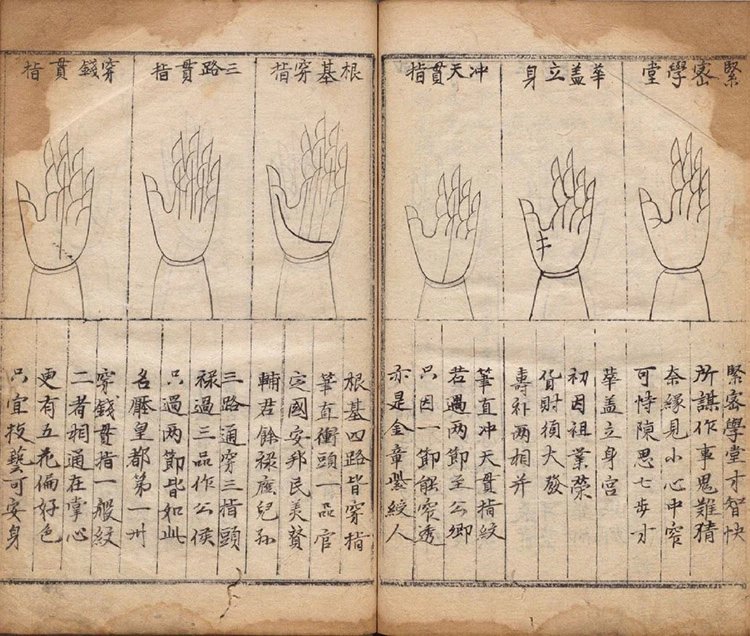 緊密學堂
華盖立身
冲天貫指
緊密學堂才智快
所謀作事鬼難猜
奈緣見小心中窄
可恃陳思七步才
華盖立身宮
初因祖業榮
貨財須大發
壽两相并
筆直冲天貫指紋
若過两節至公卿
只因一節窄透
亦是金章紫綬人
根基穿指
三路貫指
穿錢貫指
根基四路皆穿指
筆直衝頭一品官
定國安邦民美賛
輔君餘禄廕兒孫
三路通穿三指頭
禄過三品作公侯
只過两節皆如此
名壓皇都第一州
穿錢貫指一般紋
二者相通在掌心
更有五花偏好色
只宜技藝可安身